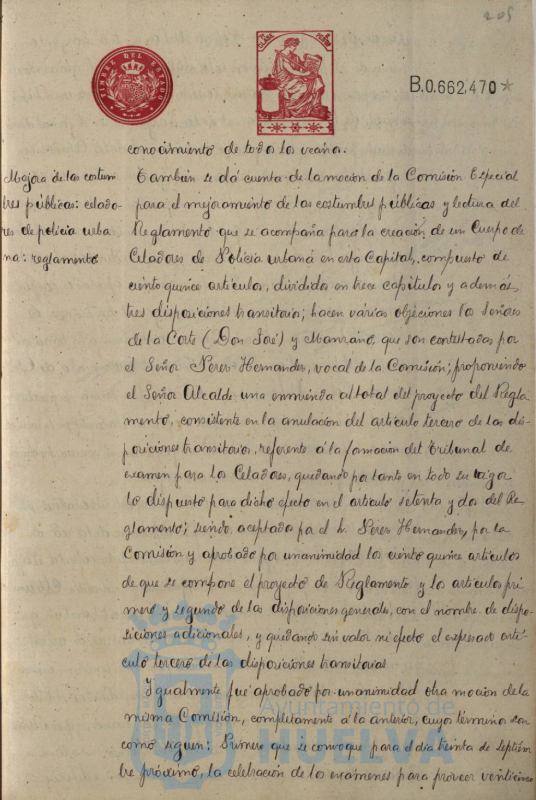 205
TIMBRE DEL ESTADO
CLASE
B.0.662.470*
conocimiento de todos los vecinos.
Mejora de las costum
bres públicas: celado-
res de policia urba
na: reglamento
También se dá cuenta de la moción de la Comisión Especial
para el mejoramiento de las costumbres públicas y lectura del
Reglamento que se acompaña para la creación de un Cuerpo de
Celadores de Policia urbana en esta Capital, compuesto de
ciento quince articulos, divididos en trece capitulos y además
tres disposiciones transitorias; hacen varias objeciones los Señores
de la Corte (Don José) y Manzano, que son contestadas por
el Señor Perez Hernandez, vocal de la Comisión; proponiendo
el Señor Alcalde una enmienda al total del proyecto del Regla-
mento, consistente en la anulación del articulo tercero de las dis-
posiciones transitorias, referente á la formación del Tribunal de
examen para los Celadores, quedando por tanto en todo su vigor
lo dispuesto para dicho efecto en el articulo setenta y dos del Re-
glamento; siendo aceptada por el Sr. Perez Hernandez, por la
Comisión y aprobado por unanimidad los ciento quince articulos
de que se compone el proyecto de Reglamento y los articulos pri
mero y segundo de las disposiciones generales, con el nombre de dispo-
siciones adicionales, y quedando sin valor ni efecto el expresado artí-
culo tercero de las disposiciones transitorias
Igualmente fué aprobado por unanimidad otra moción de la
misma Comisión, completamente á la anterior, cuyos términos son
como siguen: Primero que se convoque para el dia treinta de Septiém
bre próximo, la celebración de los exámenes para proveer veinticinco
Ayuntamiento de
HUELVA